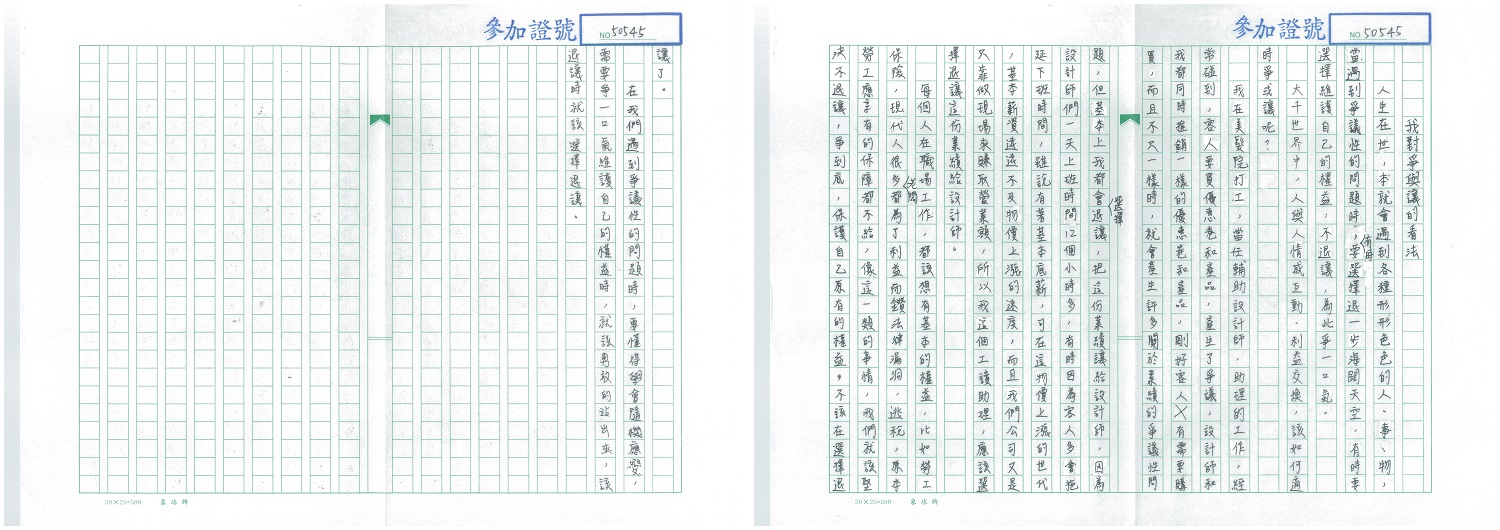 參加證號 NO. 50545
我對爭與讓的看法
人生在世，本就會遇到各種形形色色的人、事、物，
當遇到爭議性的問題時，備用要選擇退一步海闊天空，有時要
選擇維護自己的權益，不退讓，為此爭一口氣。
大千世界中，人與人情感互動、利益交換，該如何適
時爭或讓呢？
我在美髮院打工，當任輔助設計師，助理的工作，經
常碰到，客人要買優惠卷和產品，產生了爭議，設計師和
我都同時推銷一樣的優惠卷和產品，剛好客人又有需要購
買，而且不只一樣時，就會產生許多關於業績的爭議性問
題，但基本上我都會選擇退讓，把這份業績讓給設計師，因為
設計師們一天上班時間12個小時多，有時因為客人多會拖
延下班時間，雖說有著基本底薪，可在這物價上漲的世代
，基本薪資遠遠不及物價上漲的速度，而且我們公司又是
只靠做現場來賺取營業額，所以我這個工讀助理，應該選
擇退讓這份業績給設計師。
每個人在職場工作，都該想有基本的權益，比如勞工
保險，現代人很多老闆都為了利益而鑽法律漏洞，逃稅，原本
勞工應享有的保障都不給，像這一類的事情，我們就該堅
決不退讓，爭到底，保護自己原有的權益。不該在選擇退
參加證號 NO. 50545
讓了。
在我們遇到爭議性的問題時，要懂得學會隨機應變，
需要爭一口氣維護自己的權益時，就該勇敢的站出來，該
退讓時就該選擇退讓。
20×25=500 象球牌
20×25=500 象球牌